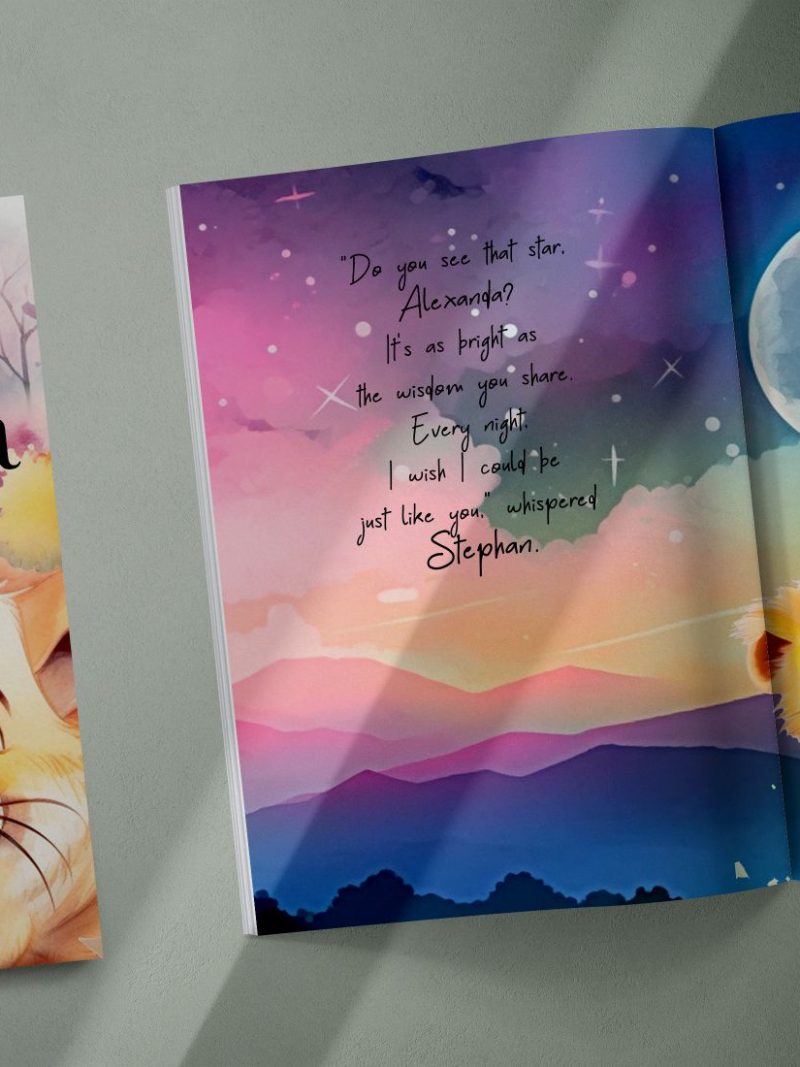 "Do you see that star.
Alexanda?
It's as bright as
the wisdom you share.
Every night.
I wish I could be
just like you." whispered
Stephan.